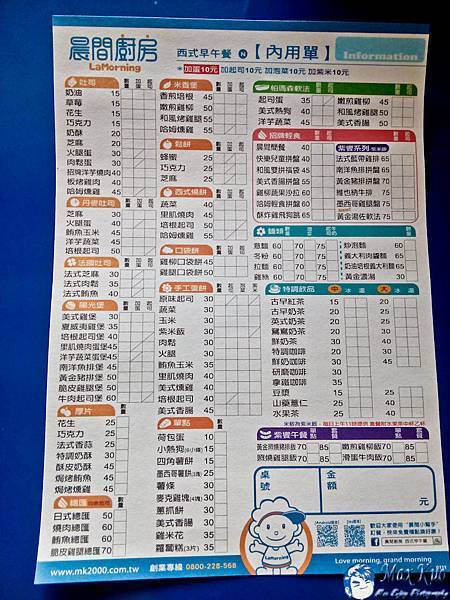 晨間廚房
LaMorning
西式早午餐 N 【內用單】
Information
* 加蛋10元 加起司10元 加泡菜10元 加紫米10元
吐司
奶油 15
草莓 15
花生 15
巧克力 15
奶酥 20
芝麻 20
火腿蛋 30
肉鬆蛋 30
招牌洋芋燒肉 40
板烤雞肉 40
哈姆燻雞 45
丹麥吐司
芝麻 30
火腿起司 40
鮪魚玉米 45
洋芋蔬菜 45
培根起司 50
法國吐司
法式芝麻 30
法式肉鬆 35
法式鮪魚 40
陽光堡
美式雞堡 30
夏威夷雞堡 35
培根蛋堡 40
里肌燒肉蛋堡 45
洋芋蔬菜蛋堡 45
南洋魚排堡 45
黃金豬排堡 50
脆皮雞腿堡 50
牛肉起司堡 60
厚片
花生 25
巧克力 25
法式香蒜 25
特調奶酥 30
酥皮奶酥 35
焗烤鮪魚 45
焗烤燻雞 45
總匯
日式總匯 50
燒肉總匯 60
燻雞總匯 60
脆皮雞腿總匯 70
米香堡
香煎培根 40
嫩煎雞柳 45
和風烤雞腿 55
哈姆燻雞 55
鬆餅
蜂蜜 25
巧克力 25
芝麻 25
西式燒餅
蔬菜 40
里肌燒肉 40
培根起司 45
哈姆燻雞 50
口袋餅
雞柳口袋餅 45
雞腿口袋餅 50
手工蛋餅
原味起司 30
蔬菜 30
玉米 30
紫米飯 30
肉鬆 30
火腿 30
鮪魚玉米 35
里肌燒肉 35
美式燻雞 35
培根起司 35
美式香腸 35
單點
荷包蛋 10
小熱狗(6小條) 15
四角薯餅 15
墨西哥薯餅(3塊) 25
薯條 30
麥克雞塊(4塊) 30
蔥抓餅 30
美式香腸 30
雞米花 30
蘿蔔糕(3片) 35
帕瑪森軟法
起司蛋 35
美式熱狗 40
洋芋蔬菜 45
嫩煎雞柳 45
和風烤雞腿 55
美式香腸 50
招牌輕食
晨間簡餐 40
快樂兒童拼盤 40
和風雙拼福袋 35
美式香腸拼盤 55
雞柳蔬果沙拉 60
哈姆輕食拼盤 60
酥炸雞飛狗跳 65
紫饗系列
法式藍帶雞排 65
南洋魚排拼盤 65
黃金豬排拼盤 70
維也納牛排 75
墨西哥雞腿排 80
黃金湯佐軟法 75
麵類
意麵 60 70 75
名粉 60 70 75
拉麵 60 70 75
麵絲 60 70 75
炒泡麵 60
義大利肉醬麵 65
奶油培根義大利麵 65
黃金濃湯 30
特調飲品 中 冰 溫 大 冰 溫
古早紅茶 15 20
古早奶茶 20 25
英式奶茶 20 25
鴛鴦奶茶 20 25
鮮奶茶 30 40
特調咖啡 30 40
鮮奶咖啡 30 40
研磨咖啡 30
拿鐵咖啡 35
豆漿 15 25
山藥薏仁 25 40
水果茶 25 40
紫饗午餐
黃金照燒豬排飯 70 85
照燒雞腿飯 70 85
嫩煎雞柳飯 70 85
滑蛋牛肉飯 70 85
桌號
金額
元
LaMorning
[Android版本]
[ios版本]
歡迎大家使用「晨間小幫手」
訂餐,快來免費體驗點餐囉!
晨間廚房 西式早午餐
Love morning, grand morning
www.mk2000.com.tw 創業專線 0800-228-568